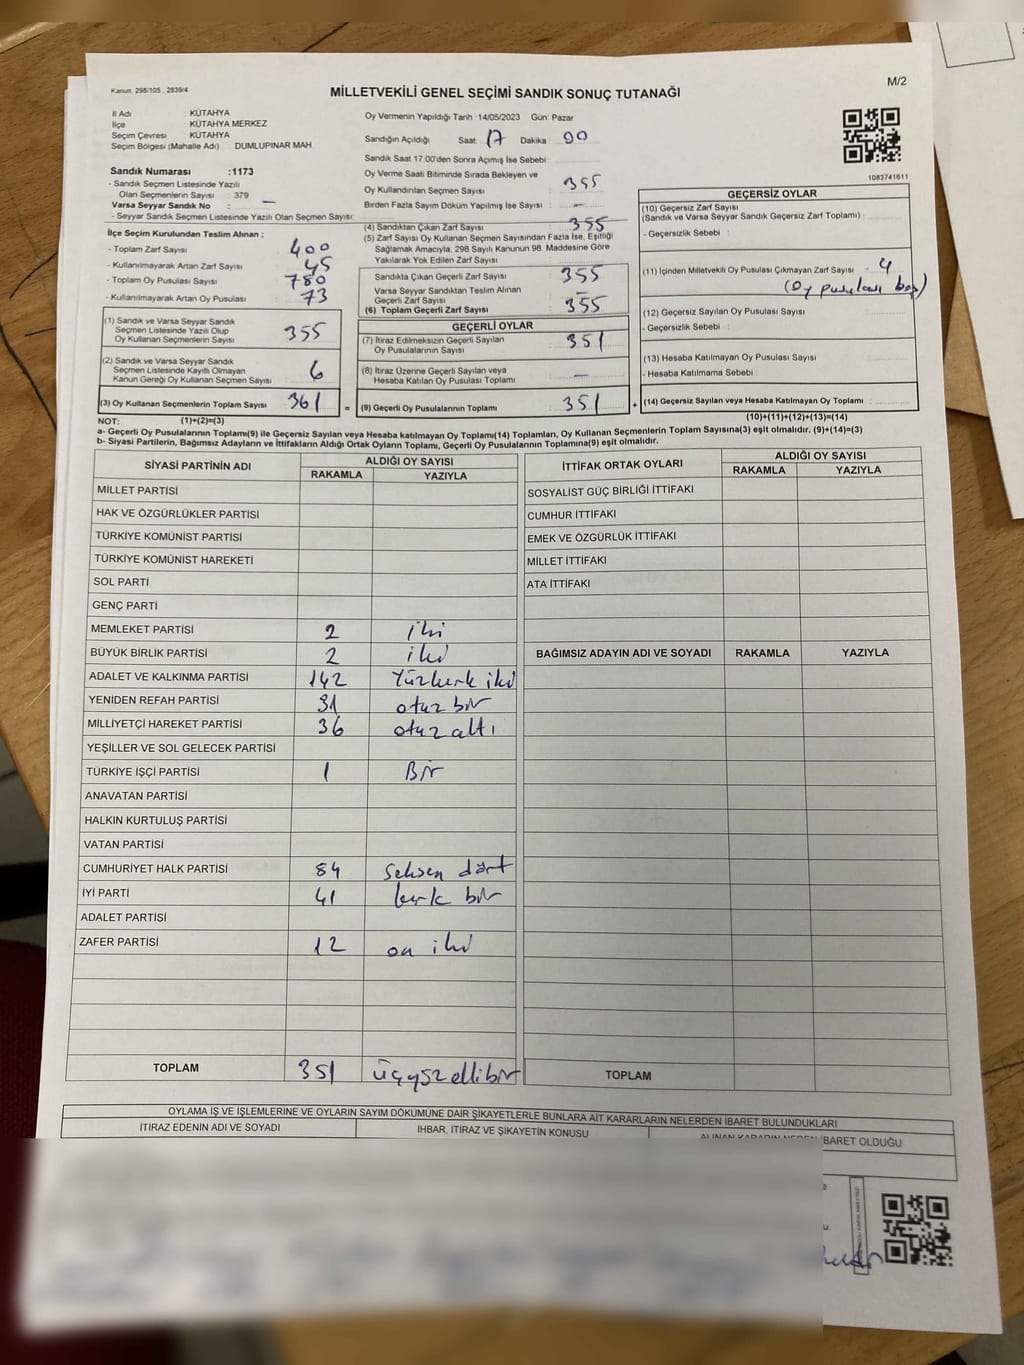 Kanun, 298/105 , 2839/4
M/2
MİLLETVEKİLİ GENEL SEÇİMİ SANDIK SONUÇ TUTANAĞI
İl Adı : KÜTAHYA
İlçe : KÜTAHYA MERKEZ
Seçim Çevresi : KÜTAHYA
Seçim Bölgesi (Mahalle Adı) : DUMLUPINAR MAH.
Sandık Numarası :1173
- Sandık Seçmen Listesinde Yazılı
Olan Seçmenlerin Sayısı : 379
Varsa Seyyar Sandık No : —
- Seyyar Sandık Seçmen Listesinde Yazılı Olan Seçmen Sayısı:
İlçe Seçim Kurulundan Teslim Alınan ;
- Toplam Zarf Sayısı 400
- Kullanılmayarak Artan Zarf Sayısı 45
- Toplam Oy Pusulası Sayısı 780
- Kullanılmayarak Artan Oy Pusulası 73
(1) Sandık ve Varsa Seyyar Sandık
Seçmen Listesinde Yazılı Olup
Oy Kullanan Seçmenlerin Sayısı 355
(2) Sandık ve Varsa Seyyar Sandık
Seçmen Listesinde Kayıtlı Olmayan
Kanun Gereği Oy Kullanan Seçmen Sayısı 6
(3) Oy Kullanan Seçmenlerin Toplam Sayısı 361
Oy Vermenin Yapıldığı Tarih : 14/05/2023 Gün: Pazar
Sandığın Açıldığı Saat: 17 Dakika : 00
Sandık Saat 17:00'den Sonra Açımış İse Sebebi :
Oy Verme Saati Bitiminde Sırada Bekleyen ve
Oy Kullandırılan Seçmen Sayısı : 355
Birden Fazla Sayım Döküm Yapılmış İse Sayısı : —
(4) Sandıktan Çıkan Zarf Sayısı 355
(5) Zarf Sayısı Oy Kullanan Seçmen Sayısından Fazla İse, Eşitliği
Sağlamak Amacıyla, 298 Sayılı Kanunun 98. Maddesine Göre
Yakılarak Yok Edilen Zarf Sayısı
Sandıkta Çıkan Geçerli Zarf Sayısı 355
Varsa Seyyar Sandıktan Teslim Alınan
Geçerli Zarf Sayısı —
(6) Toplam Geçerli Zarf Sayısı 355
GEÇERLİ OYLAR
(7) İtiraz Edilmeksizin Geçerli Sayılan
Oy Pusulalarının Sayısı 351
(8) İtiraz Üzerine Geçerli Sayılan veya
Hesaba Katılan Oy Pusulası Toplamı —
= (9) Geçerli Oy Pusulalarının Toplamı 351 +
1083741611
GEÇERSİZ OYLAR
(10) Geçersiz Zarf Sayısı
(Sandık ve Varsa Seyyar Sandık Geçersiz Zarf Toplamı) :
- Geçersizlik Sebebi :
(11) İçinden Milletvekili Oy Pusulası Çıkmayan Zarf Sayısı : 4
(Oy pusulası boş)
(12) Geçersiz Sayılan Oy Pusulası Sayısı :
- Geçersizlik Sebebi :
(13) Hesaba Katılmayan Oy Pusulası Sayısı :
- Hesaba Katılmama Sebebi :
(14) Geçersiz Sayılan veya Hesaba Katılmayan Oy Toplamı :
NOT: (1)+(2)=(3) (10)+(11)+(12)+(13)=(14)
a- Geçerli Oy Pusulalarının Toplamı(9) ile Geçersiz Sayılan veya Hesaba katılmayan Oy Toplamı(14) Toplamları, Oy Kullanan Seçmenlerin Toplam Sayısına(3) eşit olmalıdır. (9)+(14)=(3)
b- Siyasi Partilerin, Bağımsız Adayların ve İttifakların Aldığı Ortak Oyların Toplamı, Geçerli Oy Pusulalarının Toplamına(9) eşit olmalıdır.
SİYASİ PARTİNİN ADI ALDIĞI OY SAYISI
RAKAMLA YAZIYLA
MİLLET PARTİSİ
HAK VE ÖZGÜRLÜKLER PARTİSİ
TÜRKİYE KOMÜNİST PARTİSİ
TÜRKİYE KOMÜNİST HAREKETİ
SOL PARTİ
GENÇ PARTİ
MEMLEKET PARTİSİ 2 iki
BÜYÜK BİRLİK PARTİSİ 2 iki
ADALET VE KALKINMA PARTİSİ 142 Yüzkırk iki
YENİDEN REFAH PARTİSİ 31 otuz bir
MİLLİYETÇİ HAREKET PARTİSİ 36 otuz altı
YEŞİLLER VE SOL GELECEK PARTİSİ
TÜRKİYE İŞÇİ PARTİSİ 1 Bir
ANAVATAN PARTİSİ
HALKIN KURTULUŞ PARTİSİ
VATAN PARTİSİ
CUMHURİYET HALK PARTİSİ 84 seksen dört
İYİ PARTİ 41 kırk bir
ADALET PARTİSİ
ZAFER PARTİSİ 12 on iki
TOPLAM 351 üçyüzellibir
İTTİFAK ORTAK OYLARI ALDIĞI OY SAYISI
RAKAMLA YAZIYLA
SOSYALİST GÜÇ BİRLİĞİ İTTİFAKI
CUMHUR İTTİFAKI
EMEK VE ÖZGÜRLÜK İTTİFAKI
MİLLET İTTİFAKI
ATA İTTİFAKI
BAĞIMSIZ ADAYIN ADI VE SOYADI RAKAMLA YAZIYLA
TOPLAM
OYLAMA İŞ VE İŞLEMLERİNE VE OYLARIN SAYIM DÖKÜMÜNE DAİR ŞİKAYETLERLE BUNLARA AİT KARARLARIN NELERDEN İBARET BULUNDUKLARI
İTİRAZ EDENİN ADI VE SOYADI İHBAR, İTİRAZ VE ŞİKAYETİN KONUSU ALINAN KARARIN NEDEN İBARET OLDUĞU